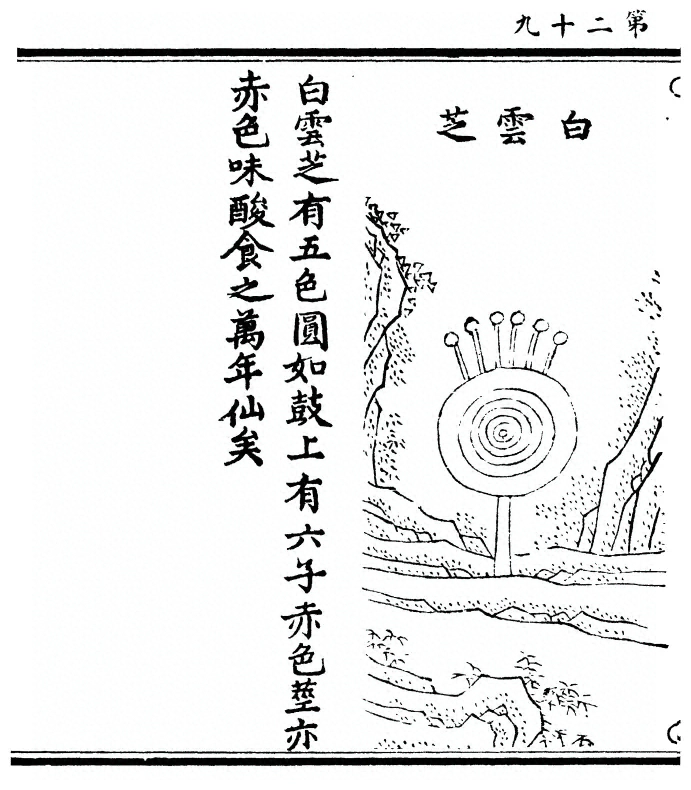 第二十九
白雲芝
白雲芝有五色圓如鼓上有六子赤色莖亦
赤色味酸食之萬年仙矣